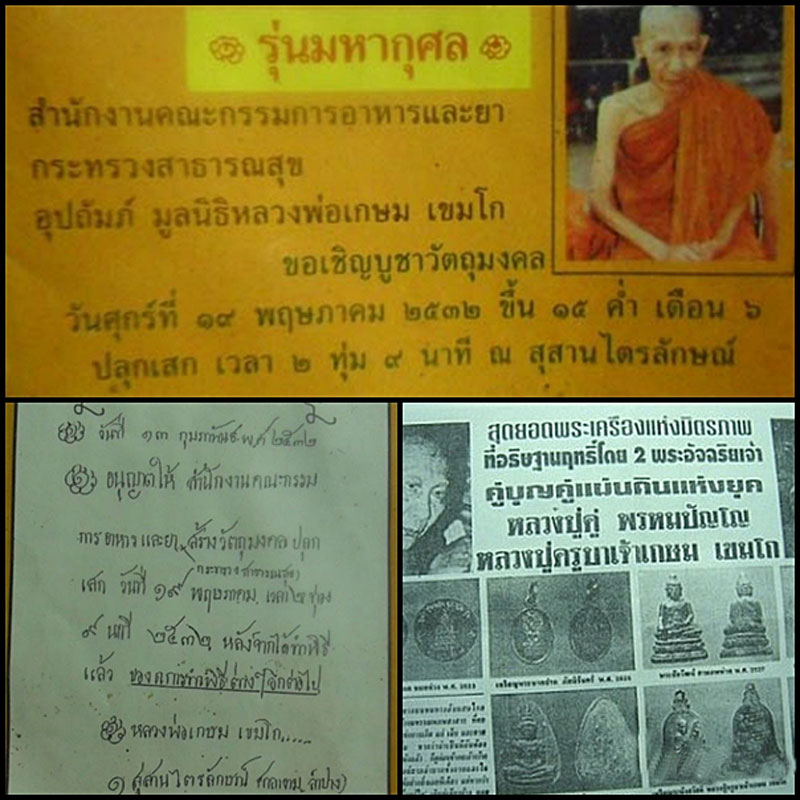 รุ่นมหากุศล
สำนักงานคณะกรรมการอาหารและยา
กระทรวงสาธารณสุข
อุปถัมภ์ มูลนิธิหลวงพ่อเกษม เขมโก
ขอเชิญบูชาวัตถุมงคล
วันศุกร์ที่ ๑๙ พฤษภาคม ๒๕๓๒ ขึ้น ๑๕ ค่ำ เดือน ๖
ปลุกเสก เวลา ๒ ทุ่ม ๙ นาที ณ สุสานไตรลักษณ์
วันที่ ๑๓ กุมภาพันธ์ พ.ศ ๒๕๓๒
๑ อนุญาตให้ สำนักงานคณะกรรม
การอาหารและยา สร้างวัตถุมงคล ปลุก
(กระทรวงสาธารณสุข)
เสก วันที่ ๑๙ พฤษภาคม เวลา ๒ ทุ่ม
๙ นาที ๒๕๓๒ หลังจากได้ทำพิธี
แล้ว ของดการทำพิธีต่างๆ อีกต่อไป
หลวงพ่อเกษม เขมโก.....
๑ สุสานไตรลักษณ์ (ศาลาดำ, ลำปาง)
สุดยอดพระเครื่องแห่งมิตรภาพ
ที่อธิษฐานฤทธิ์โดย 2 พระอัจฉริยเจ้า
คู่บุญคู่แผ่นดินแห่งยุค
หลวงปู่ดู่ พรหมปัญโญ
หลวงปู่ครูบาเจ้าเกษม เขมโก